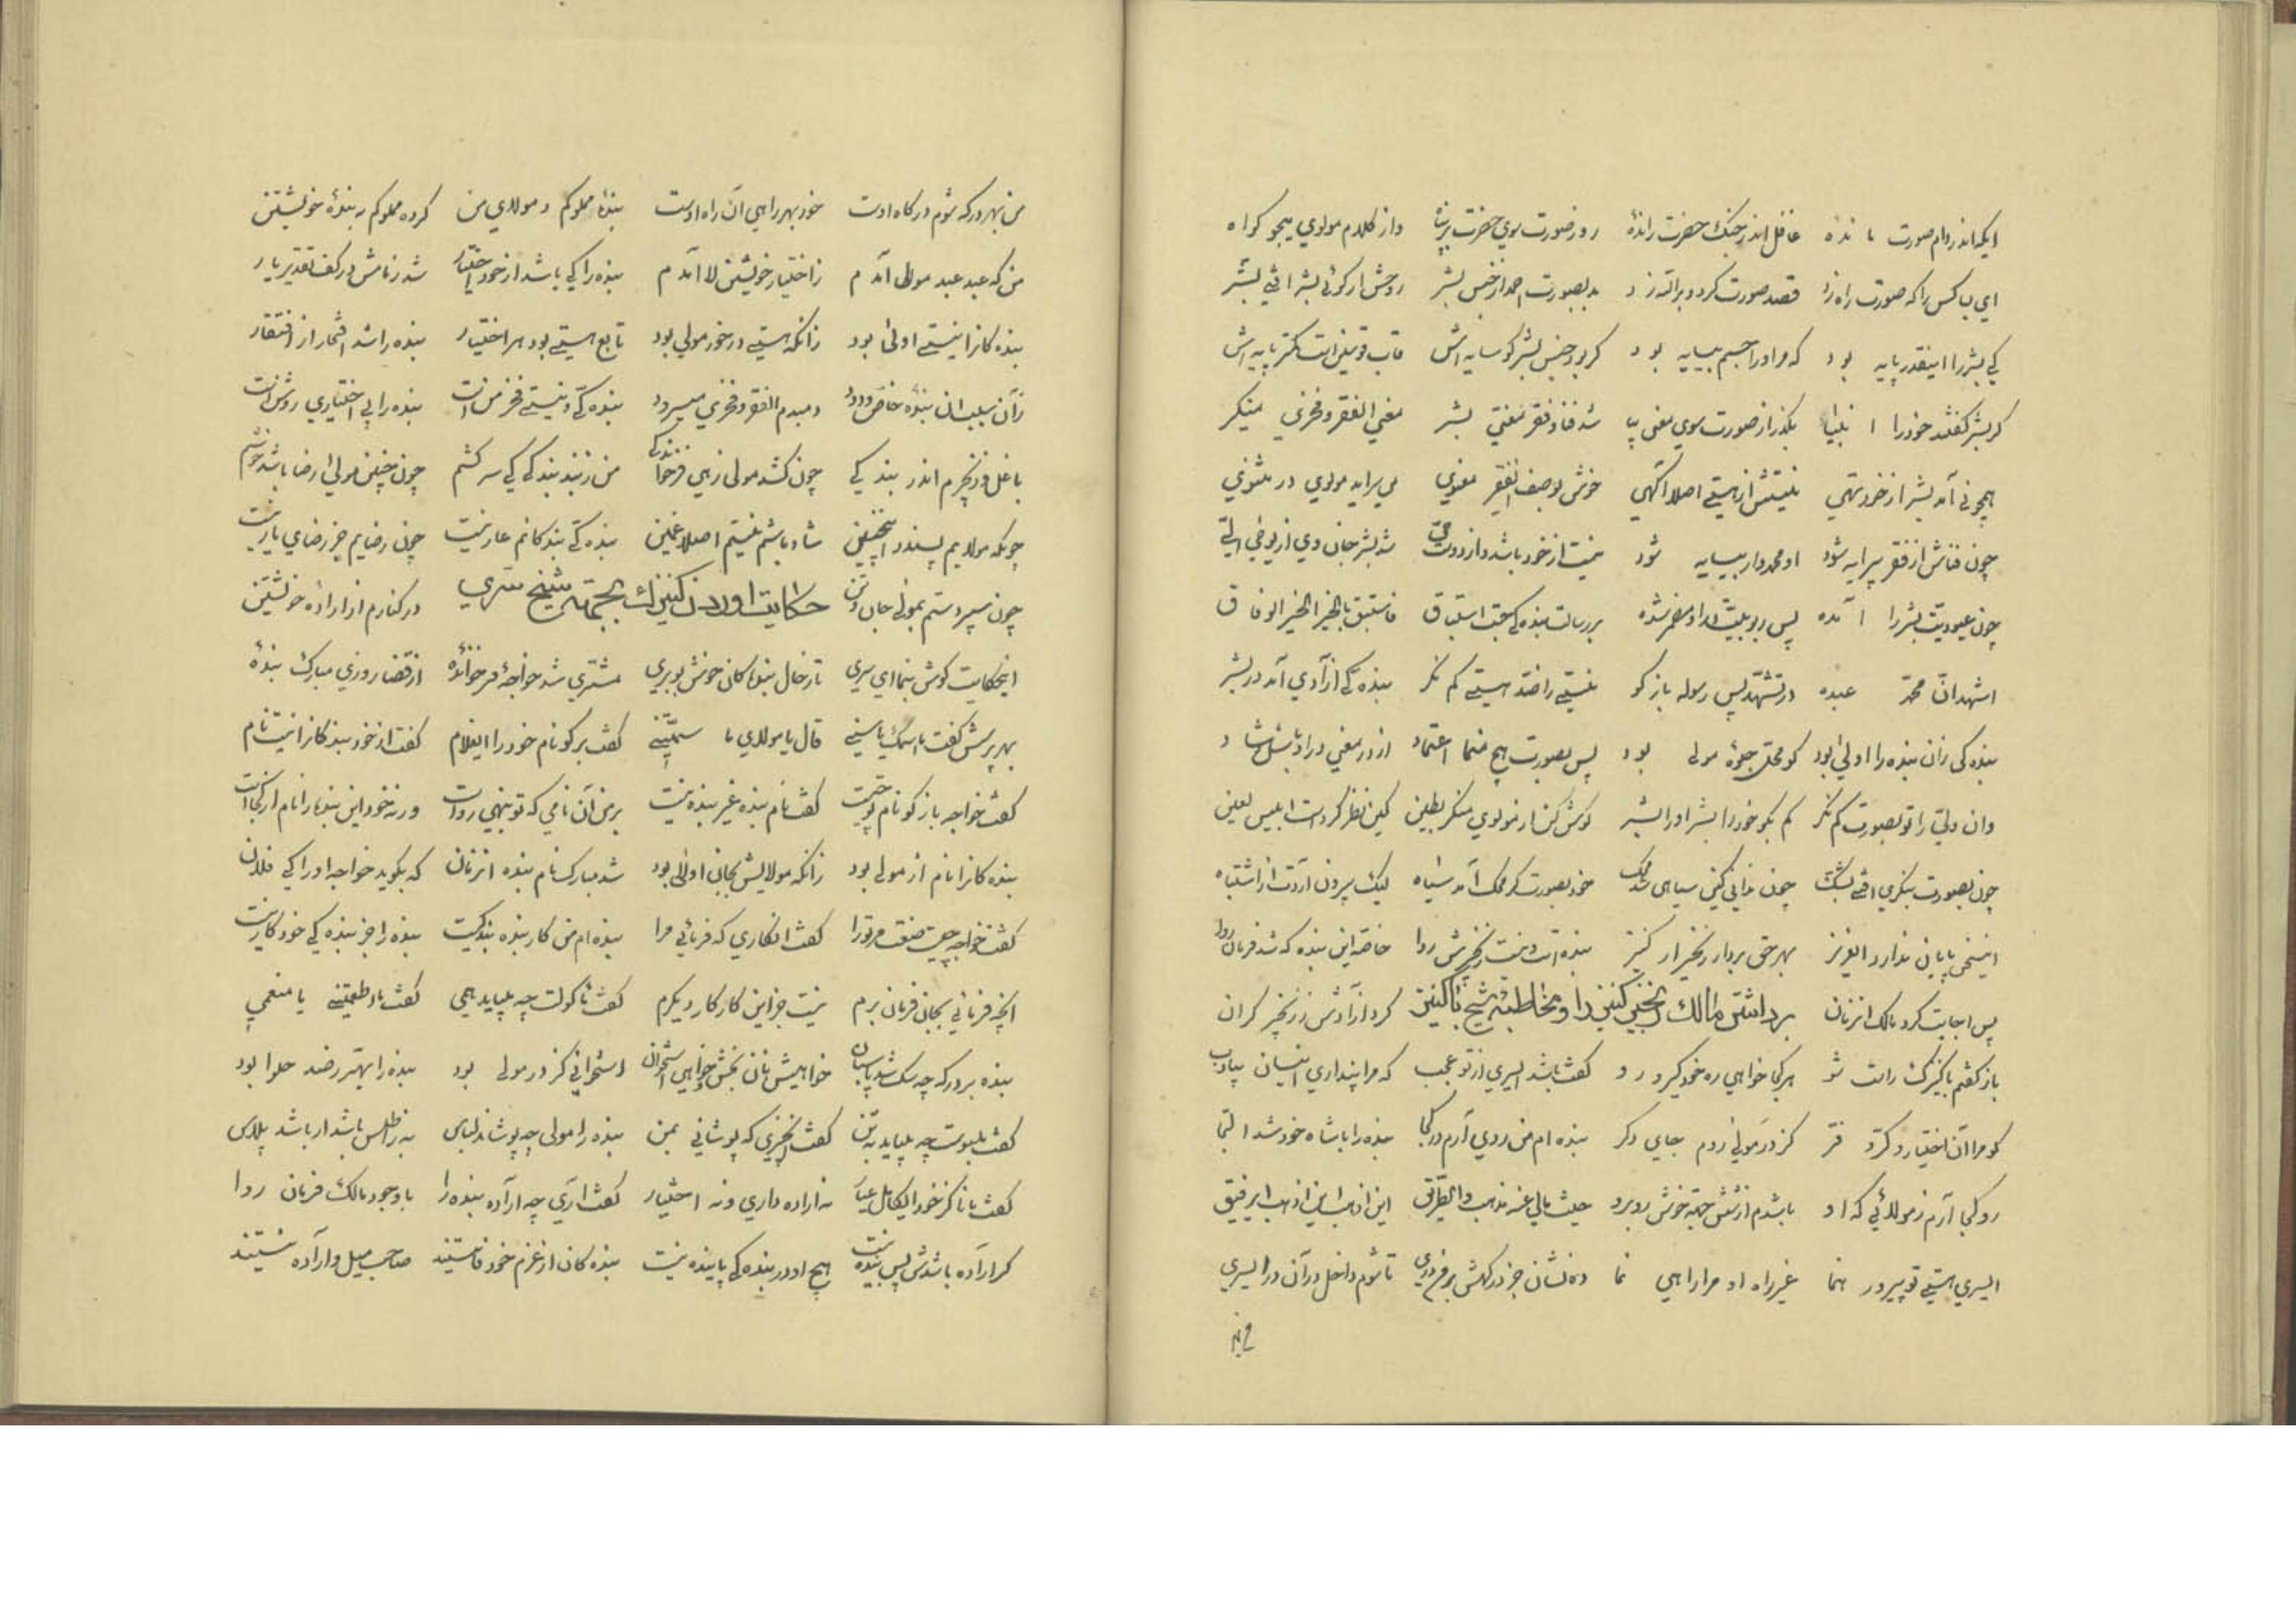 ایکه اندر دام صورت مانده غافل اندر جنک حضرت رانده رو ز صورت سوی حضرت بر پناه واز کلام مولوی میجو کواه
ای بسا کس را که صورت راه زد قصد صورت کرد و بر الله زد بد بصورت احمد از جنس بشر روحش از کوئی بشر افی بشر
کی بشر را اینقدر پایه بود که مر او را جسم بیسایه بود کر بود جنس بشر کو سایه اش قاب قوسین است کمتر پایه اش
کر بشر کفتند خود را انبیا بکذر از صورت سوی معنی بیا شد فنا و فقر معنی بشر معنی الفقر و فخری مینکر
همچو نی آمد بشر از خود تهی نیستش از هستی اصلا آکهی خوش بوصف الفقر معنوی می سراید مولوی در مثنوی
چون فناش از فقر پیرایه شود او محمد وار بیسایه شود نیست از خود باشد و از دوست حی شد بشر جان وی از یوحی الی
چون عبودیت بشر را آمده پس ربوبیت در او مضمر شده بر رسالت بنده کی سبقت استباق فاستبق بالخیر الخیر الوفاق
اشهد ان محمد عبده در تشهد پس رسوله باز کو نیستی را ضد هستی کم نکر بنده کی ازآدی آمد در بشر
بنده کی زان بنده را اولی بود کو محل جلوهٔ مولی بود پس بصورت هیچ منما اعتماد از در معنی درا و باش شاد
وان ولی را تو بصورت کم نکر کم بکو خود را بشر او را بشر کوش کن از مولوی منکر بطین کین نظر کردست ابلیس لعین
چون بصورت بنکری افی بشک چون ندانی کین سیاهی شد محک خود بصورت کر محک آمد سیاه لیک بیرون آردت از اشتباه
این سخن پایان ندارد ایعزیز بهر حق بردار زنجیر از کنیز بنده است و نیست زنجیرش روا خاصه این بنده که شد فرمان روا
پس اجابت کرد مالک انزمان برداشتن مالک زنجیر کنیز را و مخاطبه شیخ با کنیز کرد ازآدش ز زنجیر کران
باز کفتم با کنیزک راست شو هر کجا خواهی ره خود کیر و رو کفت باشد ایسری از تو عجب که مرا پنداری انسان بی ادب
کو مرا آن اختیار و کر و فر کز در مولی روم جای دکر بنده ام من روی آرم در کجا بنده را با شاه خود شد التجا
رو کجا آرم ز مولائی که او باشدم از شش جهة خوش روبرو حیث مالی عنه مذهب و الطریق این اذهب این اذهب ایرفیق
ایسری هستی تو پیر و رهنما غیر راه او مرا راهی نما ده نشان جز درکهش برفرع دری تا شوم داخل در آن در ایسری
من بهر درکه شوم درکاه اوست خود بهر راهی آن راه اوست بندهٔ مملوکم و مولای من کرده مملوکم به بندهٔ خویشتن
من که عبد عبد مولی آمدم ز اختیار خویشتن لا آمدم بنده را کی باشد از خود اختیار شد زمامش در کف تقدیر یار
بنده کانرا نیستی اولی بود زانکه هستی در خور مولی بود تابع هستی بود هر اختیار بنده را شد افتخار از افتقار
زآن سبب ان بندهٔ خاص ودود دمبدم الفقر و فخری میسرود بنده کی و نیستی فخر من است بنده را بی اختیاری روشن است
با غل و زنجیرم اندر بندکی چون کشد مولی زهی فرخندکی من ز بند بندکی کی سر کشم چون چنین مولی رضا باشد خوشم
چونکه مولایم پسندد اینچنین شاد باشم نیستم اصلا غمین بنده کی بندکانم عار نیست چون رضایم جز رضای یار نیست
چون سپردستم بمولی جان و تن حکایت اوردن کنیزک بجهة شیخ سری در کنارم از ارادهٔ خویشتن
اینحکایت کوش بنما ای سری تا ز حال بندکان خوش بو بری مشتری شد خواجهٔ فرخنده از قضا روزی مبارک بندهٔ
بهر پرسش کفت ما اسمک یا سنی قال یا مولای ما سمیتنی کفت برکو نام خود را ایغلام کفت از خود بندکانرا نیست نام
کفت خواجه باز کو نام تو چیست کفت نام بنده غیر بنده نیست بر من آن نامی که تو بنهی رواست ورنه خود این بنده را نام از کجاست
بنده کانرا نام از مولی بود زانکه مولایش بجان اولی بود شد مبارک نام بنده انزمان که بکوید خواجه او را کی فلان
کفت خواجه چیست صنعت مر ترا کفت انکاری که فرمائی مرا بنده ام من کار بنده بندکیست بنده را جز بنده کی خود کار نیست
انچه فرمانی بجان فرمان برم نیست جز این کار کار دیکرم کفت ماکولت چه میباید همی کفت ما اطعمتنی یا منعمی
بنده بر درکه چو سک شد پاسبان خواهیش نان بخش و خواهی استخوان استخوانی کز در مولی بود بنده را بهتر ز صد حلوا بود
کفت ملبوست چه میباید به تن کفت انچیزی که پوشانی بمن بنده را مولی چه پوشاند لباس به ز اطلس باشد ار باشد پلاس
کفت نه اراده داری و نه اختیار کفت اری چه ارآده بنده را با وجود مالک فرمان روا
کر ارآده باشدش پس بنده نیست هیچ او در بنده کی پاینده نیست بنده کان از عزم خود فانیستند صاحب میل و ارآده نیستند